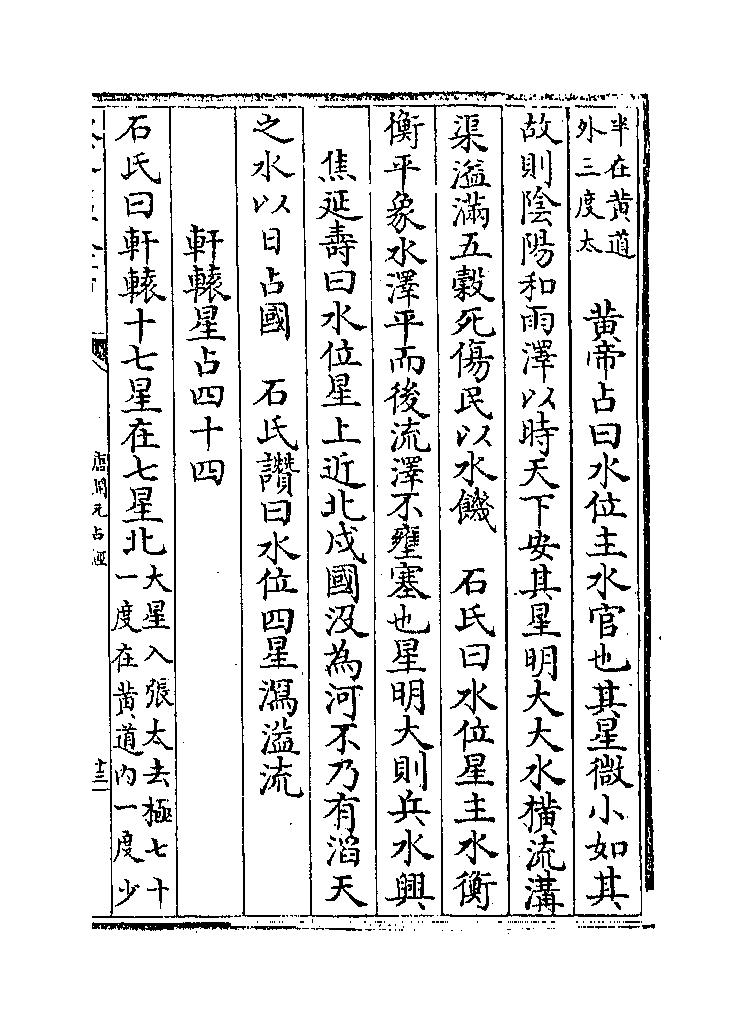 半在黄道外三度太　黄帝占曰水位主水官也其星微小如其
故則陰陽和雨澤以時天下安其星明大大水横流溝
渠溢滿五穀死傷民以水饑　石氏曰水位星主水衡
衡平象水澤平而後流澤不壅塞也星明大則兵水興
焦延壽曰水位星上近北戍國没為河不乃有滔天
之水以日占國　石氏讚曰水位四星瀉溢流
軒轅星占四十四
石氏曰軒轅十七星在七星北大星入張太去極七十一度在黄道内一度少
唐開元占經
十三